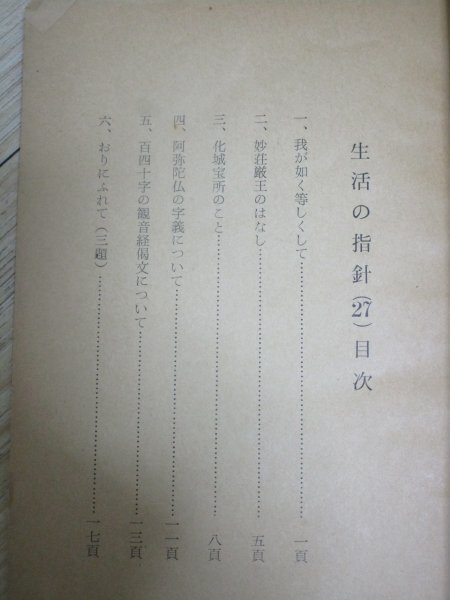 生活の指針(27)目次
一、我が如く等しくして……………………一頁
二、妙荘厳王のはなし……………………五頁
三、化城宝所のこと……………………八頁
四、阿弥陀仏の字義について……………………一一頁
五、百四十字の観音経偈文について……………………一三頁
六、おりにふれて(三題)……………………一七頁